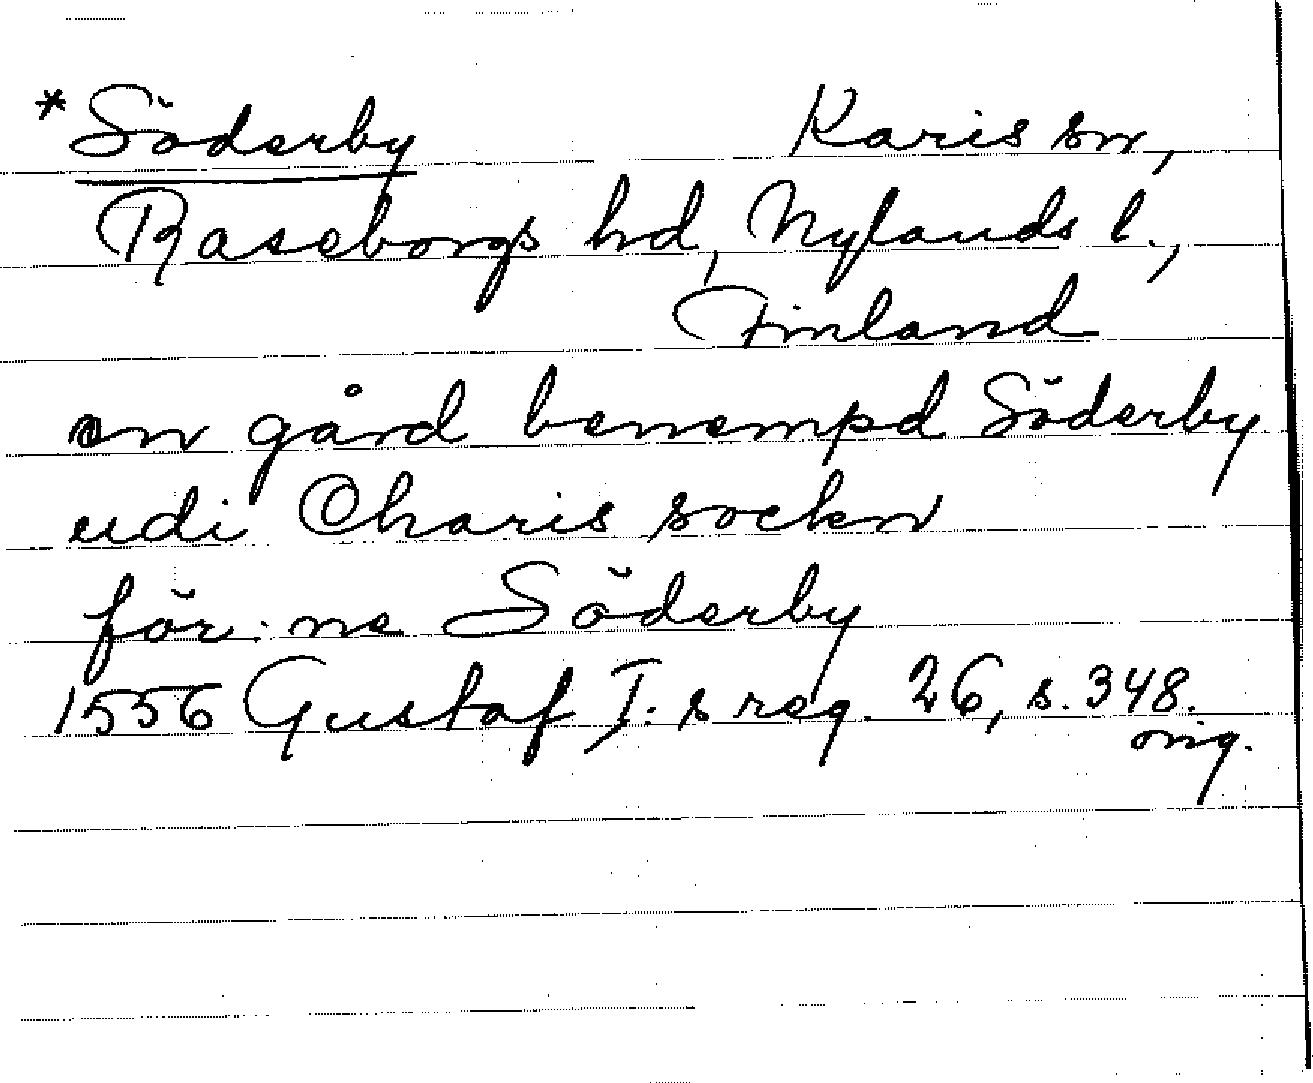 *Söderby Karis sn,
Raseborgs hd, Nylands l.,
Finland
en gård benempd Söderby
udi Charis sockn
för: ne Söderby
1556 Gustaf I: s reg. 26, s. 348.
orig.